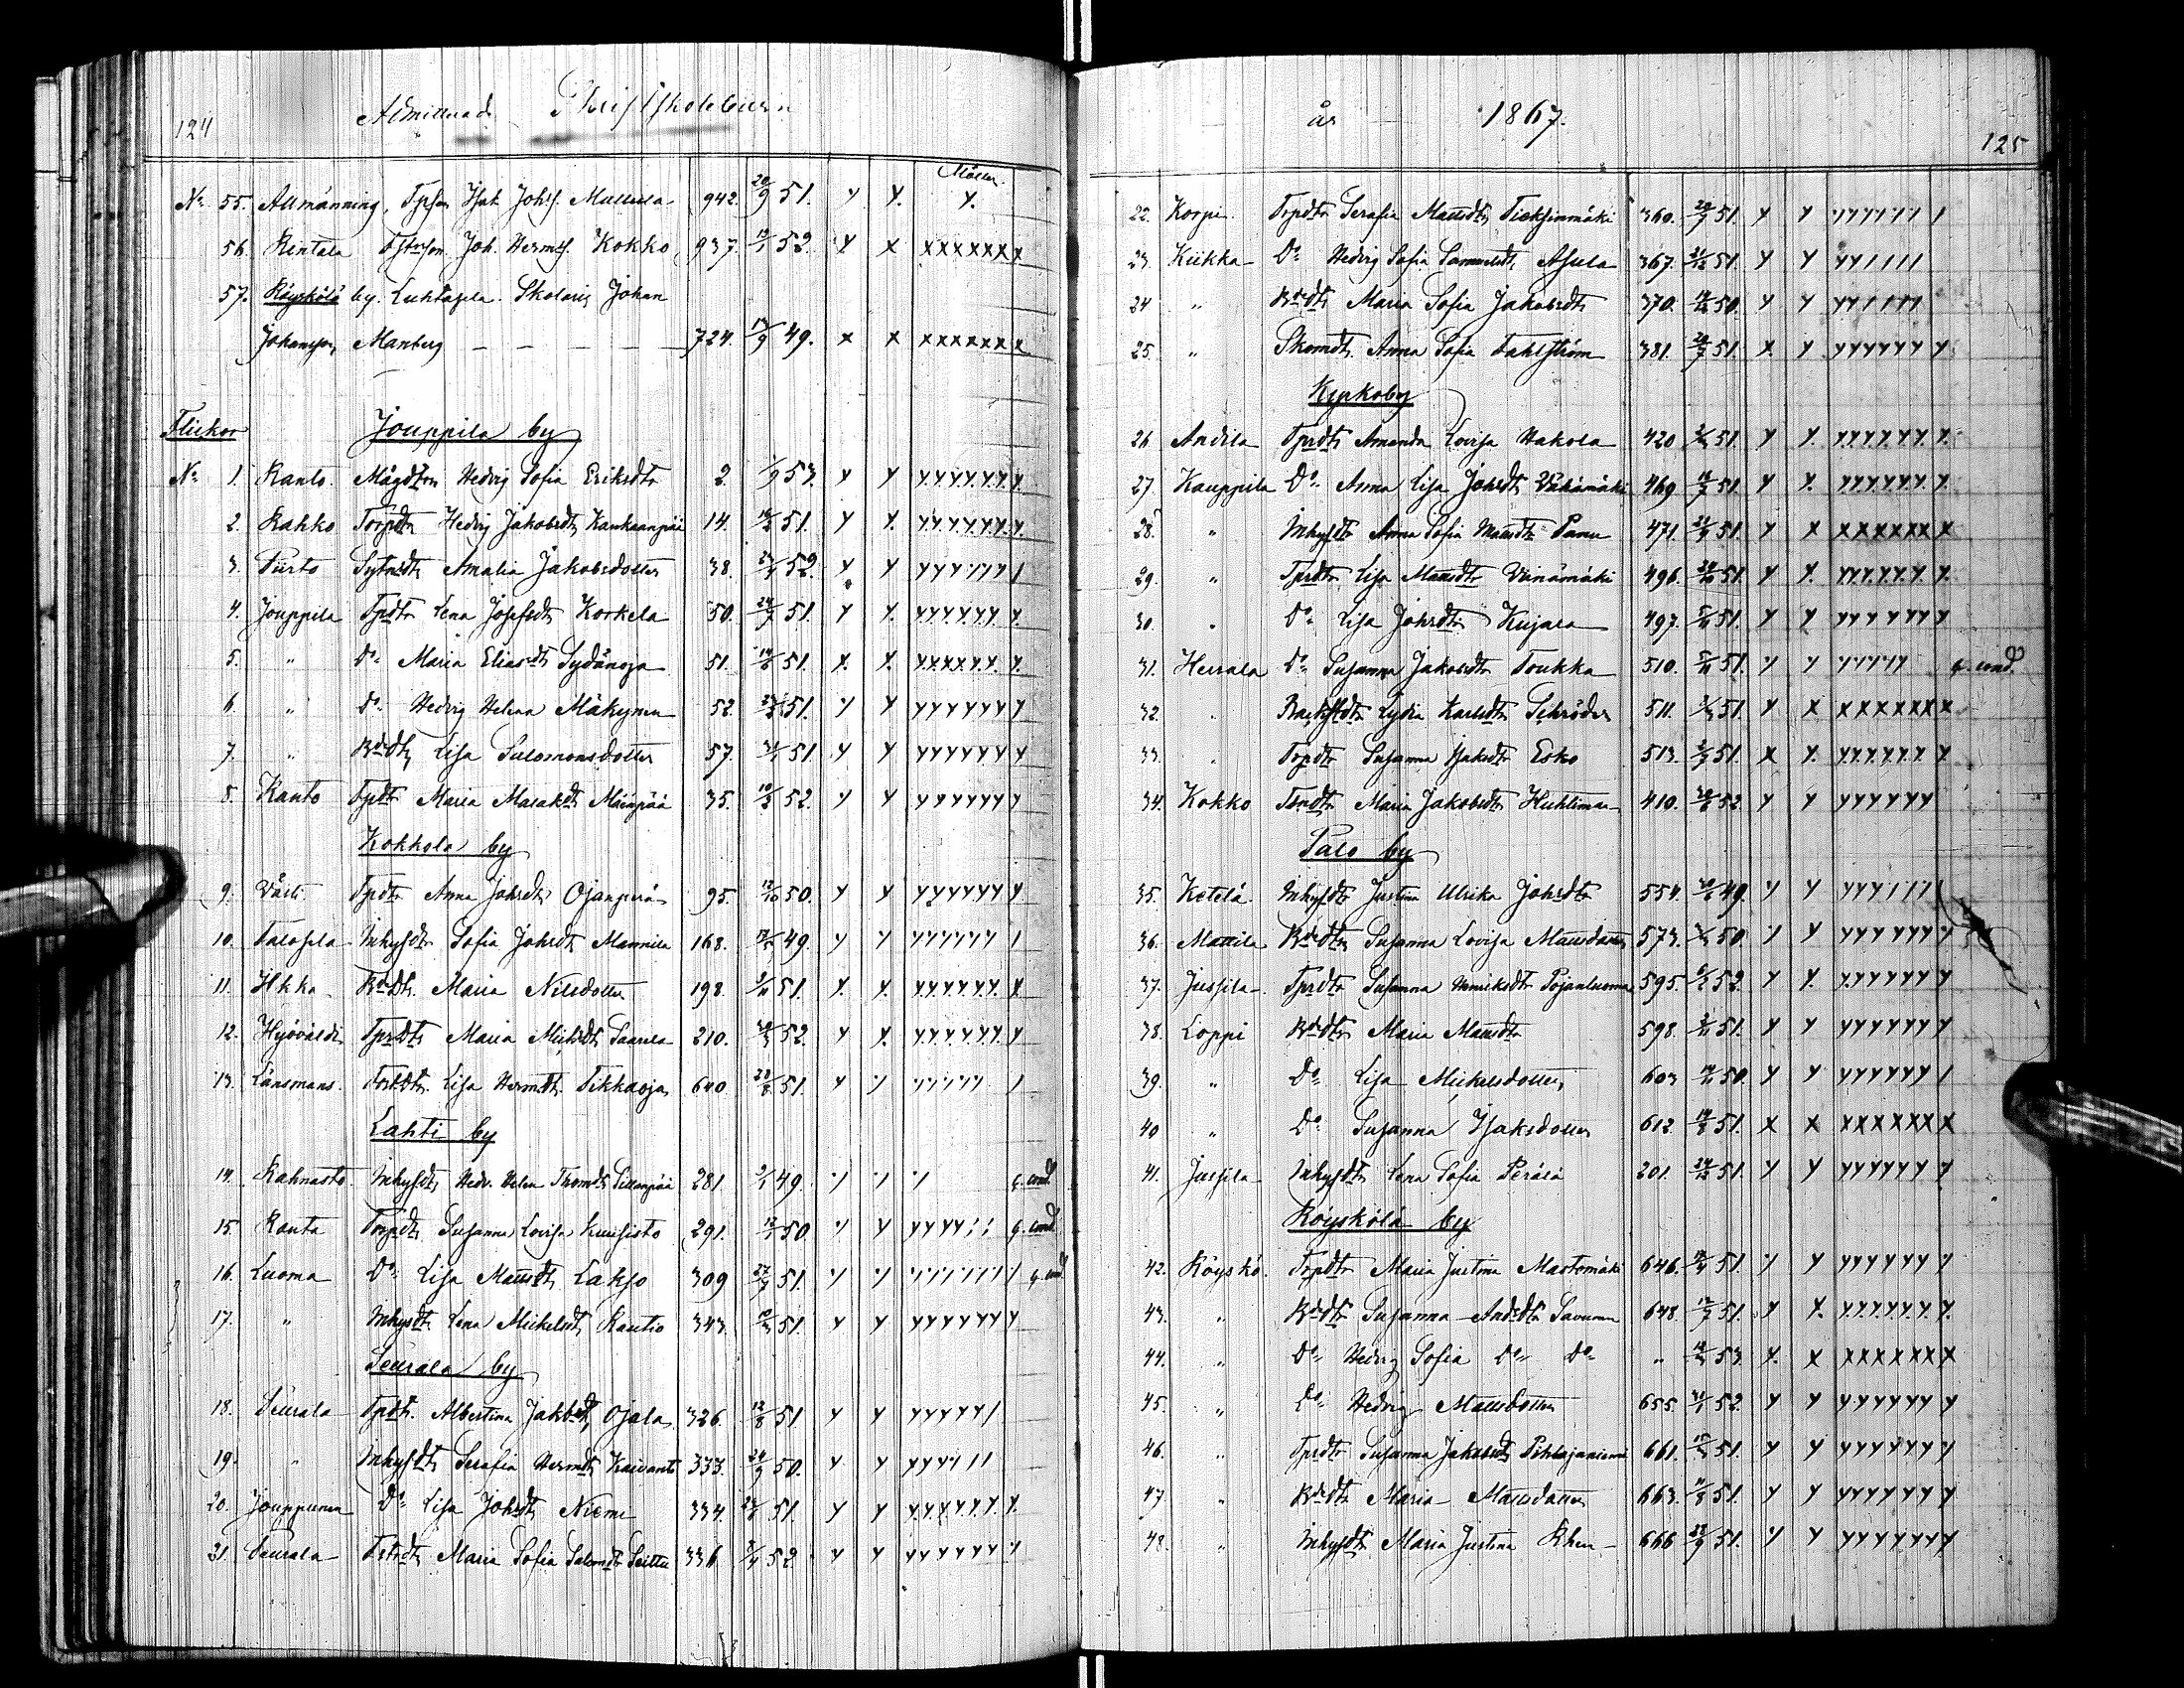 124
Admitterade Skriftskolebarn
Möller.
No 55. Allmänning, Tpson Isak Johss. Mullula 942. 20/9 51. Y Y. Y.
56. Rentala Joh. Hermss. Kokko 937. 19/1 52. Y X XXXXXX X
57. Röyskölä by. Luhtasela. Skolaris Johan
Johansson Manberg — — — — — 724. 17/9 49. X X XXXXXX X
Flickor Jouppila by
No 1. Ranto. Mågdtren Hedvig Sofia Eriksdtr 2. 1/9 53. Y Y YYYYYY Y
2. Rahko Torpdtr Hedvig Jakobsdtr Kankaanpää 14. 51. Y Y. YYYYYY Y.
3. Piirto Sytndtr Amalia Jakobsdotter 38. 52. Y Y YYY/// /
4. Jouppila Tpdtr Lena Josefsdtr Korkela 50. 24/7 51. Y Y. YYYYYY. Y.
5. " Do Maria Eliasdtr Sydänoja 51. 51. X. Y. YXXXYY. Y.
6. " Do Hedvig Helena Mäkynen 52. 51. Y Y YYYYYY Y
7. " Bdedtr Lisa Salomonsdotter 57. 51. Y Y YYYYYY Y
8. Ranto Tpdtr Maria Mäenpää 35. 52. Y Y YYYYYY Y
Kokkola by
9. Tpdtr Anna Johsdtr Ojanperä 95. 12/10 50. Y Y YYYYYY Y
10. Talosela Inhysdtr Sofia Johsdtr Mannila 168. 49. Y Y YYYYYY /
11. Ukka Bdedtr Maria Nilsdotter 198. 51. Y. Y. YYYYYY. Y.
12. Hyövälti Tprdtr Maria Michsdtr Saarela 210. 52. Y Y. YYYYYY. Y
13. Länsmans. Lisa Hermdtr Tikkaoja 640 51. Y Y YYYYY /
Lahti by
14. Rahnasto. Inhysdtr Hedv. Helen Thomdtr Sillanpää 281. 2/1 49. Y Y Y q. cond.
15. Ranta Torpdtr Susanna Lovisa Kuusisto 291. 50. Y Y YYYY// q. cond.
16. Luoma Do Lisa Mattsdtr Lakso 309 51. Y Y YYYYYY / q. cond
17. " Inhysdtr Lena Mickelsdtr Rautio 343. 51. Y Y YYYYYY Y
Seurala by
18. Seurala Tpdtr. Albertina Jakbsdtr Ojala 326. 12/8 51. Y Y YYYYY/
19. " Inhysdtr Serafia Hermdtr Kaivanto 333. 24/9 50. Y Y YYYY//
20. Jouppunen Do Lisa Johsdtr Niemi 334. 51. Y Y YYYYYY. Y.
21. Seurala Maria Sofia Salomdtr Seittu 336 52 Y Y YYYYYY Y
år 1867.
125
22. Korpi Torpdtr Serafia Mattsdtr 360. 51. Y Y YYYYYY /
23. Kiikka Do Hedvig Sofia Samuelsdtr Asula 367. 51. Y Y YY////
24 " Bdedtr Maria Sofia Jakobsdtr 370. 50. Y Y YY////
25. " Skomdtr Anna Sofia Dahlström 381. 51. X. Y YYYYYY Y
Kyrkoby
26 Andila Tprdtr Amanda Lovisa Hakola 420 51. Y Y. YYYYYY. Y.
27. Kauppila Do Anna Lisa Johsdtr Vähämäki 469 51. Y Y. YYYYYY. Y.
28. " Inhysdtr Anna Sofia Mattsdtr Panu 471. 51. Y X XXXXXX X
29. " Tprdtr Lisa Mattsdtr Vainämäki 496. 51. Y Y. YYYYYY. Y.
30. " Do Lisa Johsdtr Kujala 497. 51. Y Y YYYYYY Y
31. Heirala Do Susanna Jakobsdtr Toukka 510. 51. Y Y YYYYY q. cond.
32. " Lydia Karlsdtr Schröder 511. 51. Y X XXXXXX X
33. " Torpdtr Susanna Isaksdtr Esko 513. 51. X Y. YYYYYY. Y.
34. Kokko Maria Jakobsdtr Huhtiman 410. 52. Y Y YYYYYY
Palo by
35. Ketelä. Inhysdtr Justina Ulrika Johsdtr 554. 49. Y Y YYY////
36. Mattila Bdedtr Susanna Lovisa Mattsdotter 573. 50. Y Y YYYYYY Y
37. Jussila Tprdtr Susanna Henriksdtr Pojanluoma 595. 52. Y Y. YYYYYY Y
38. Loppi Bdedtr Maria Mattsdtr 598. 51. Y Y YYYYYY Y
39. " Do Lisa Mickelsdotter 603 50. Y Y YYYYYY /
40 " Do Susanna Isaksdotter 612. 51. X X XXXXXX X
41. Jussila Inhysdtr Lena Sofia Perälä 201. 51. Y Y YYYYYY Y
Röyskölä by
42. Röyskö. Torpdtr Maria Justina Mastomäki 646. 51. Y Y YYYYYY Y
43. " Bdedtr Susanna Andsdtr Savunen 648. 51. Y Y. YYYYYY. Y.
44. " Do Hedvig Sofia Do Do " 53. Y. X XXXXXX X
45. " Do Hedvig Mattsdotter 655. 52. Y Y YYYYYY Y
46. " Tprdtr Susanna Jakobsdtr Pihlajaniemi 661. 51. Y Y YYYYYY Y
47. " Bdedtr Maria Mattsdotter 663. 51. Y Y YYYYYY Y
48. " Inhysdtr Maria Justina Rhen 666 51. Y Y YYYYYY Y